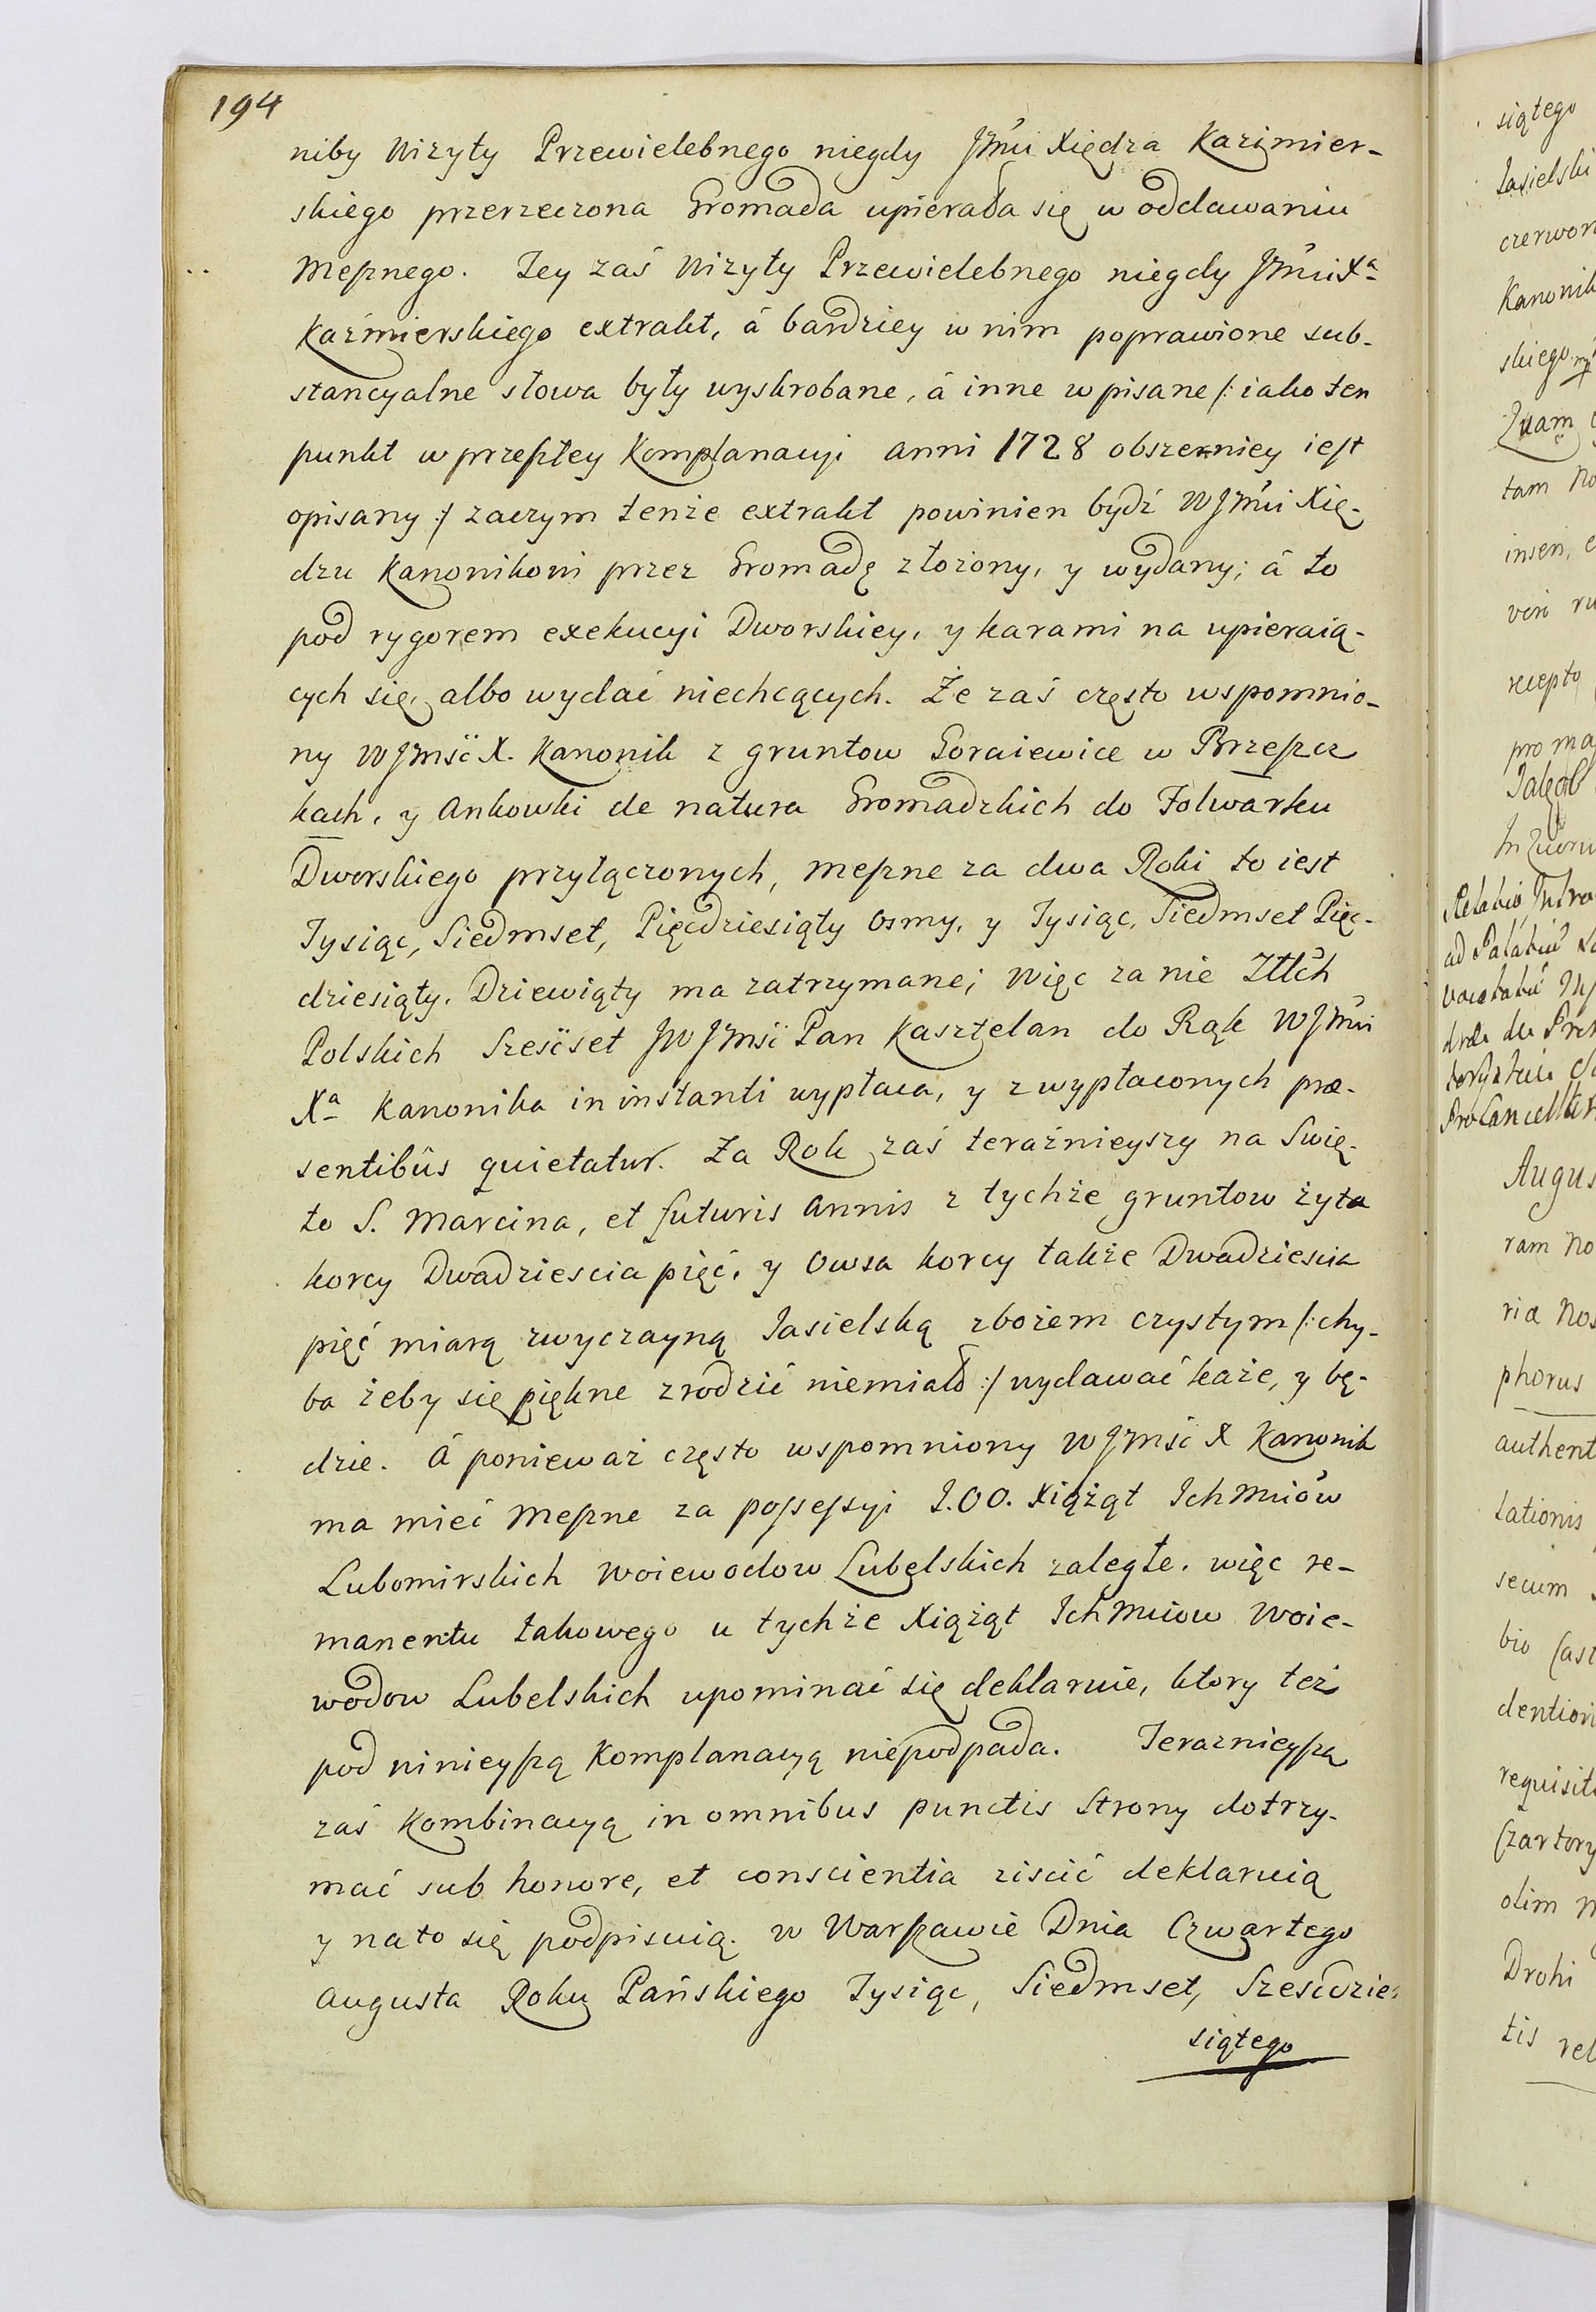 194
niby Wizyty Przewielebnego niegdy JMći Xiędza Kazimier-
skiego przerzeczona Gromada upierała się w oddawaniu
Meſznego. Tey zaś Wizyty Przewielebnego niegdy JMći Xa
Kaźmierskiego extrakt, á bardziey w nim poprawione sub-
stancyalne słowa były wyskrobane, á inne wpisane /: iako ten
punkt w przeſzłey Komplanacyi Anni 1728 obszerniey ieſt
opisany :/ zaczym tenże extrakt powinien bydź WJMći Xię-
dzu Kanonikowi przez Gromadę złożony, y wydany; á to
pod rygorem exekucyi Dworskiey, y karami na upieraią-
cych się, albo wydać niechcących. Że zaś często wspomnio-
ny WJMść X. Kanonik z gruntow Goraiewice w Brzeſzcz
kach, y Ankowki de natura Gromadzkich do Folwarku
Dworskiego przyłączonych, Meſzne za dwa Roki to iest
Tysiąc, Siedmset, Pięcdziesiąty Osmy, y Tysiąc, Siedmset Pięc-
dziesiąty, Dziewiąty ma zatrzymane; Więc za nie Zttch
Polskich Szesćset JWJMść Pan Kasztelan do Rąk WJMći
Xa Kanonika in instanti wypłaca, y z wypłaconych præ-
sentibus quietatur. Za Rok zaś teraźnieyszy na Swię-
to S. Marcina, et futuris Annis z tychże gruntow żyta
korcy Dwadziescia pięć, y Owsa korcy także Dwadziescia
pięć miarą zwyczayną Jasielską zbożem czystym /: chy-
ba żeby się piękne zrodzić niemiało :/ wydawać każe, y bę-
dzie. Á ponieważ często wspomniony WJMść X Kanonik
ma mieć Meſzne za poſseſsyi J.OO. Xiążąt Ichmciów
Lubomirskich Woiewodow Lubelskich zaległe, więc re-
manentu takowego u tychże Xiążąt Ichmciow Woie-
wodow Lubelskich upominać się deklaruie, ktory też
pod ninieyſzą Komplanacyą niepodpada. Teraznieyſzą
zaś Kombinacyą in omnibus punctis Strony dotrzy-
mać sub honore, et conscientia ziscić deklaruią
y na to się podpisuią. w Warſzawie Dnia Czwartego
Augusta Roku Pańskiego Tysiąc, Siedmset, Szescdzie-
siątego
siątego
Jasielski
Kanonik
skiego
Quam
tam
insen,
recepto
Jakob
ad
Augus
ram No
riæ Nos
phorus
authent
tationis
secum
dentiori
requisit
Czartory
olim
Drohi
tis rel